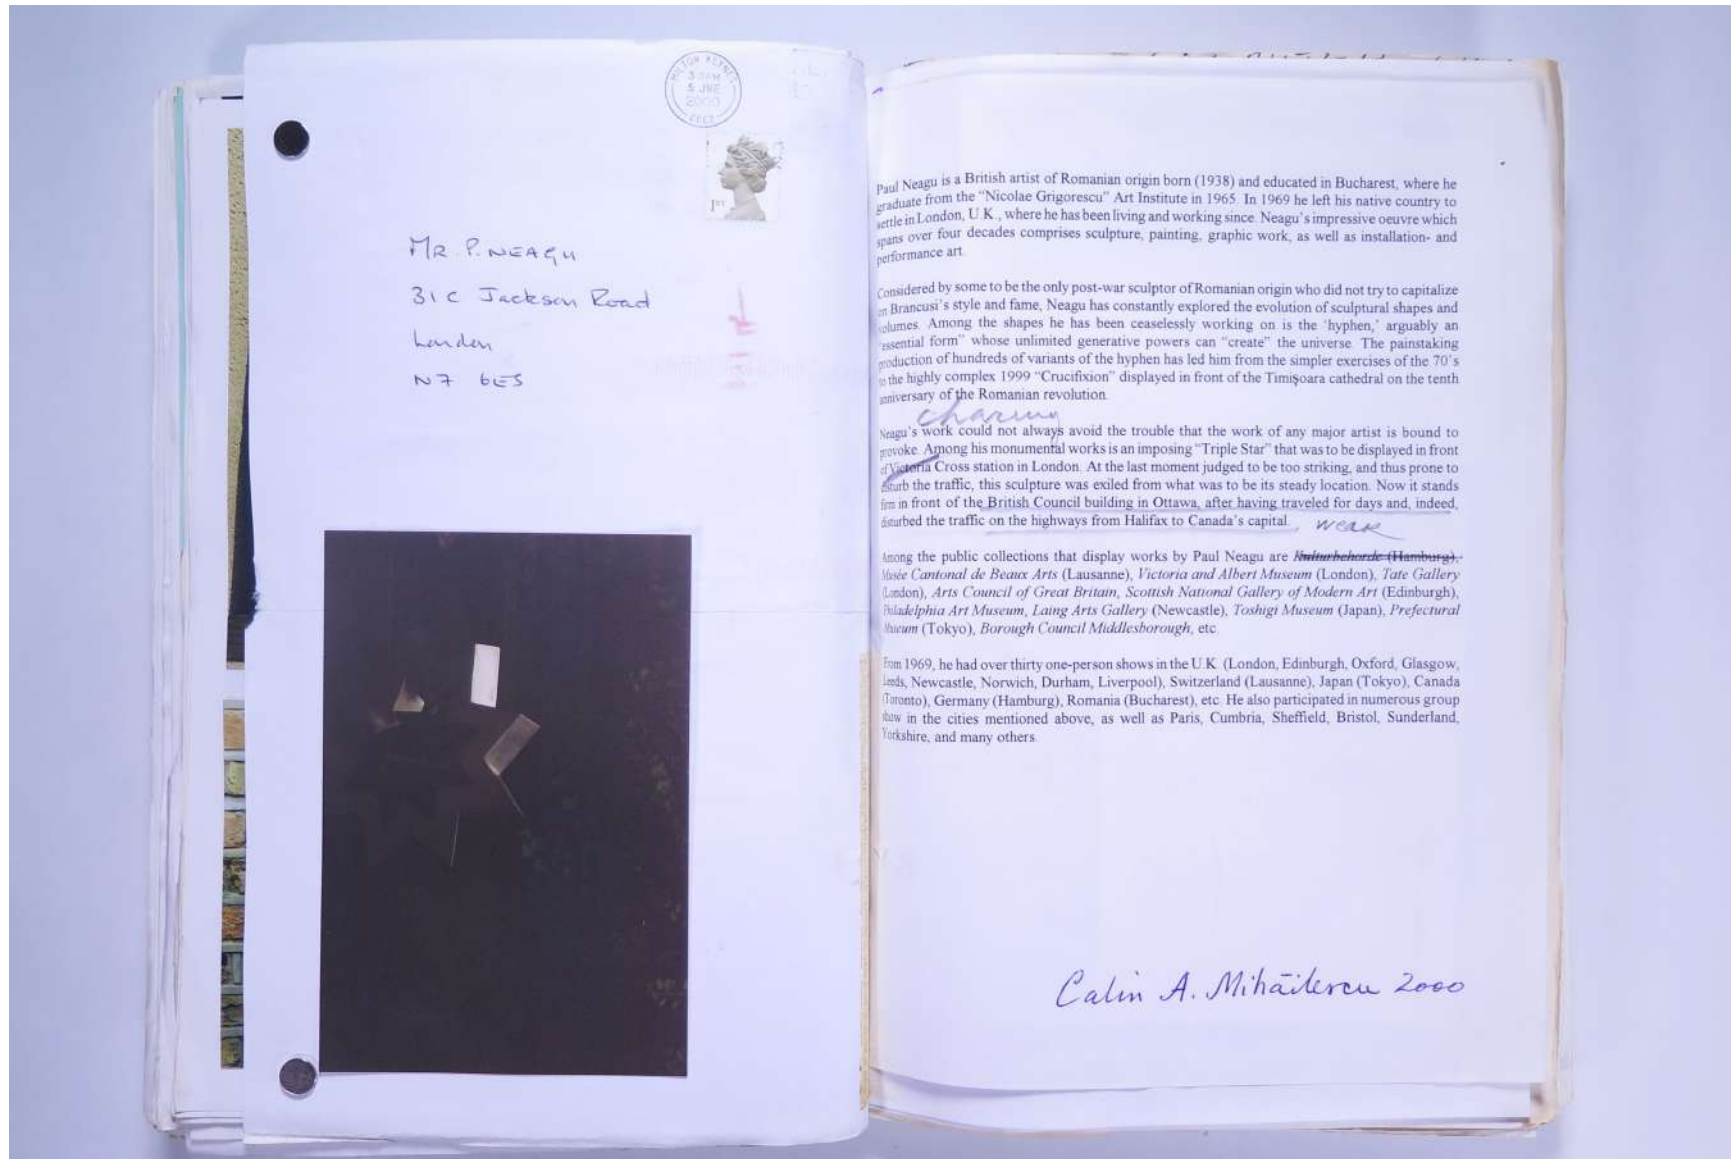 MILTON KEYNES
5 JNE
2000
1ST
MR. P. NEAGU
31C Jackson Road
London
N7 6ES
Paul Neagu is a British artist of Romanian origin born (1938) and educated in Bucharest, where he
graduate from the “Nicolae Grigorescu” Art Institute in 1965. In 1969 he left his native country to
settle in London, U.K., where he has been living and working since. Neagu's impressive oeuvre which
spans over four decades comprises sculpture, painting, graphic work, as well as installation- and
performance art.
Considered by some to be the only post-war sculptor of Romanian origin who did not try to capitalize
on Brancusi's style and fame, Neagu has constantly explored the evolution of sculptural shapes and
volumes. Among the shapes he has been ceaselessly working on is the ‘hyphen,’ arguably an
“essential form” whose unlimited generative powers can “create” the universe. The painstaking
production of hundreds of variants of the hyphen has led him from the simpler exercises of the 70's
to the highly complex 1999 “Crucifixion” displayed in front of the Timişoara cathedral on the tenth
anniversary of the Romanian revolution.
charing
Neagu's work could not always avoid the trouble that the work of any major artist is bound to
provoke. Among his monumental works is an imposing “Triple Star” that was to be displayed in front
of Victoria Cross station in London. At the last moment judged to be too striking, and thus prone to
disturb the traffic, this sculpture was exiled from what was to be its steady location. Now it stands
firm in front of the British Council building in Ottawa, after having traveled for days and, indeed,
disturbed the traffic on the highways from Halifax to Canada's capital. weak
Among the public collections that display works by Paul Neagu are Kulturbehorde (Hamburg),
Musée Cantonal de Beaux Arts (Lausanne), Victoria and Albert Museum (London), Tate Gallery
(London), Arts Council of Great Britain, Scottish National Gallery of Modern Art (Edinburgh),
Philadelphia Art Museum, Laing Arts Gallery (Newcastle), Toshigi Museum (Japan), Prefectural
Museum (Tokyo), Borough Council Middlesborough, etc.
From 1969, he had over thirty one-person shows in the U.K. (London, Edinburgh, Oxford, Glasgow,
Leeds, Newcastle, Norwich, Durham, Liverpool), Switzerland (Lausanne), Japan (Tokyo), Canada
(Toronto), Germany (Hamburg), Romania (Bucharest), etc. He also participated in numerous group
show in the cities mentioned above, as well as Paris, Cumbria, Sheffield, Bristol, Sunderland,
Yorkshire, and many others.
Calin A. Mihăilescu 2000